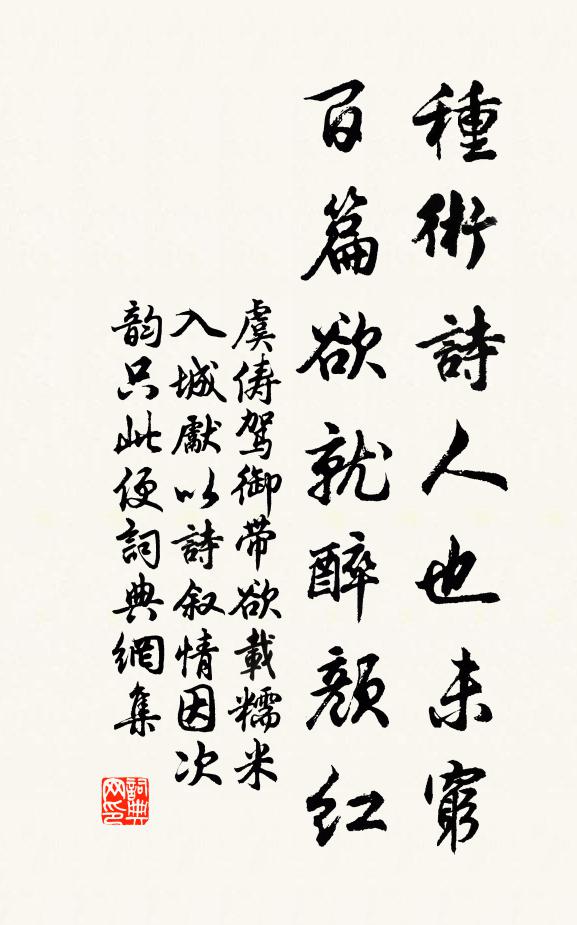 種術詩人也未窮
百篇欲就醉顏紅
虞儔驾御帶欲載糯米
入城獻以詩叙情因次
韵只此便詞典網集
詞典网印